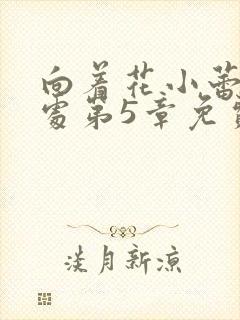 向着花小蕾
處第5章免
淡月新凉